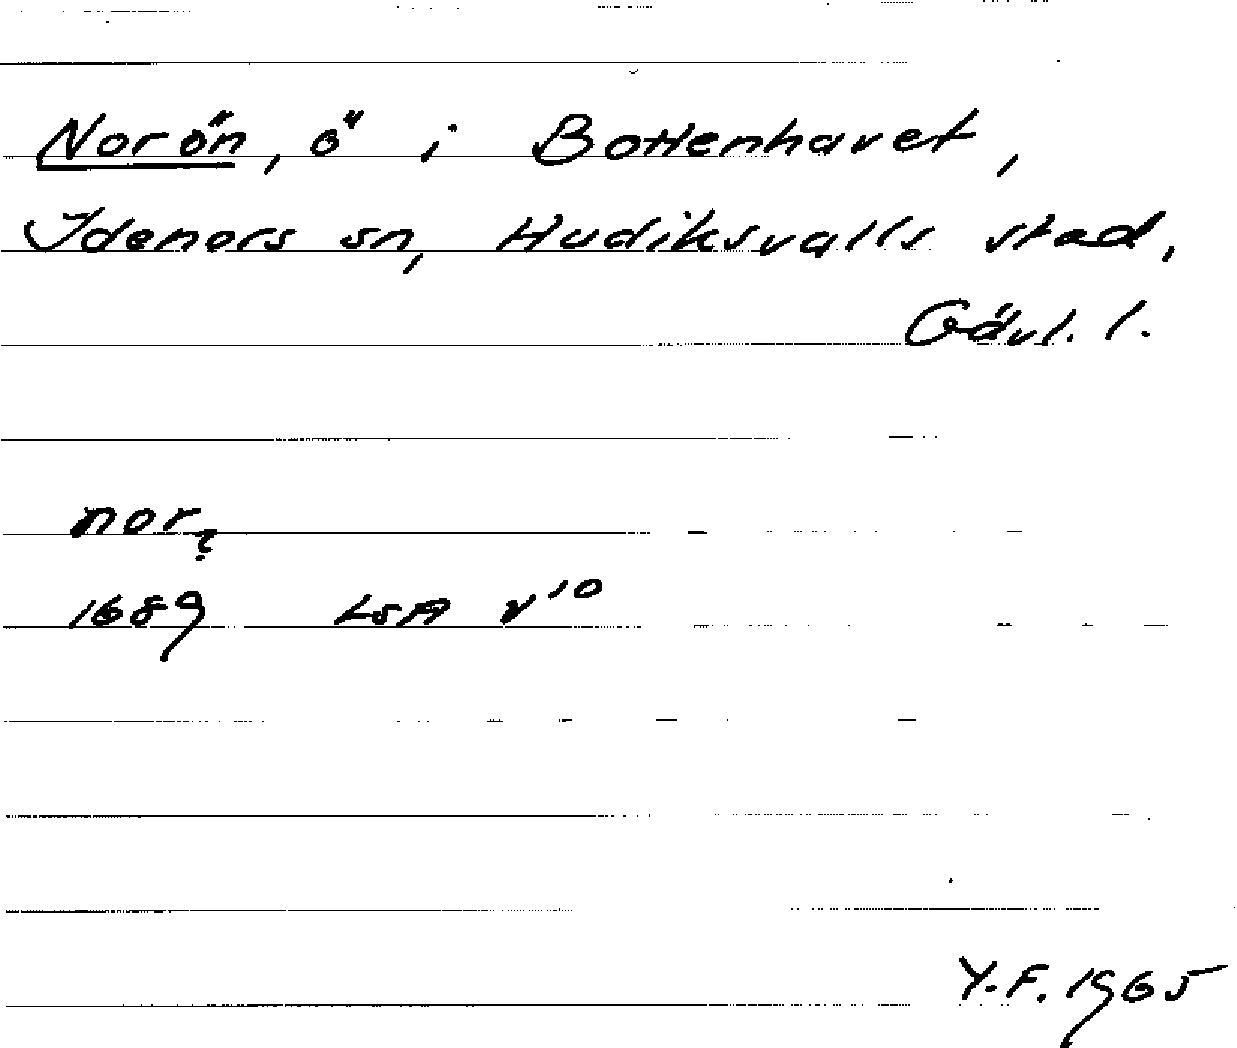 Norön, ö i Bottenhavet,
Idenors sn, Hudiksvalls stad,
Gävl. l.
nor?
1689 LSA v¹⁰
Y.F. 1965